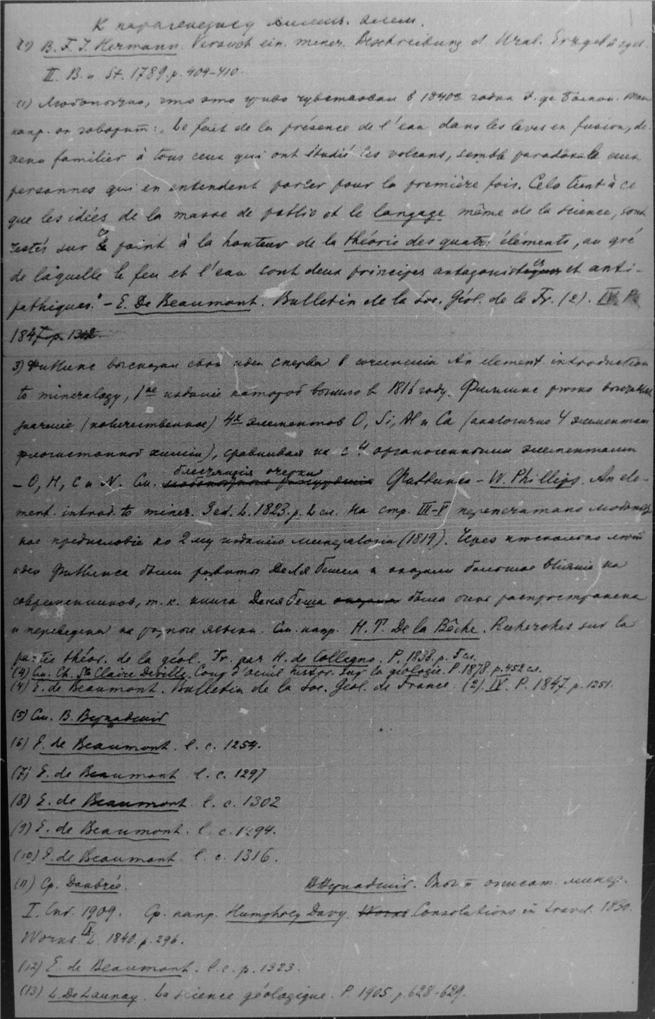 К парагенезису химич. элем.
B. F. J. Hermann. Versuch ein. miner. Beschreibung d. Ural. Erzgebirges.
II. B. u. St. 1789. p. 404-410.
(1) Любопытно, что это чувствовал в 1840х годах Э. де Бомон.
напр. он говорит: Le fait de la présence de l'eau, dans les laves en fusion, de-
venu familier à tous ceux qui ont étudié les volcans, semble paradoxale aux
personnes qui en entendent parler pour la première fois. Cela tient à ce
que les idées de la masse de public et le langage même de la science, sont
restés sur ce point à la hauteur de la théorie des quatre éléments, au gré
de laquelle le feu et l'eau sont deux principes antagonistes et anti-
pathiques." – E. De Beaumont. Bulletin de la Soc. Géol. de la Fr. (2). IV. P.
1847. p. 1312
3) Филлипс высказал свои идеи сперва в сочинении An element. introduction
to mineralogy, 1ое издание которой вышло в 1816 году. Филлипс
значение (количественное) 4х элементов O, Si, Al и Ca (аналогично 4 элементам
флогистонной химии), сравнивая их с 4 органогенными элементами
– O, H, C и N. См. блестящий очерк Филлипса – W. Phillips. An ele-
ment. introd. to miner. 3 ed. L. 1823. p. L сл. На стр. III-V перепечатано любопыт-
ное предисловие ко 2му изданию минералогии (1819). Через несколько лет
идеи Филлипса были развиты Деля Бешем и оказали большое влияние на
современников, т. к. книга Деля Беша была очень распространена
и переведена на разные языки. См. напр. H. T. De la Bêche. Recherches sur la
partie théor. de la géol. Tr. par H. de Collegno. P. 1838. p. 5 сл.
(4) См. Ch. Ste Claire Deville. Coup d'oeuil histor. sur la géologie. P. 1878. p. 452 сл.
(4) E. de Beaumont. Bulletin de la Soc. Géol. de France. (2). IV. P. 1847. p. 1251.
(5) См. В. Вернадский
(6) E. de Beaumont. l. c. 1254.
(7) E. de Beaumont. l. c. 1297
(8) E. de Beaumont. l. c. 1302
(9) E. de Beaumont. l. c. 1294.
(10) E. de Beaumont. l. c. 1316.
(11) Ср. Daubrée. В. Вернадский. Опыт описат. минер.
I. Спб. 1909. Ср. напр. Humphrey Davy. Works Consolations in travel. 1830.
Works. IX. L. 1840. p. 296.
(12) E. de Beaumont. l. c. p. 1323.
(13) L. De Launay. La science géologique. P. 1905. p. 628-629.